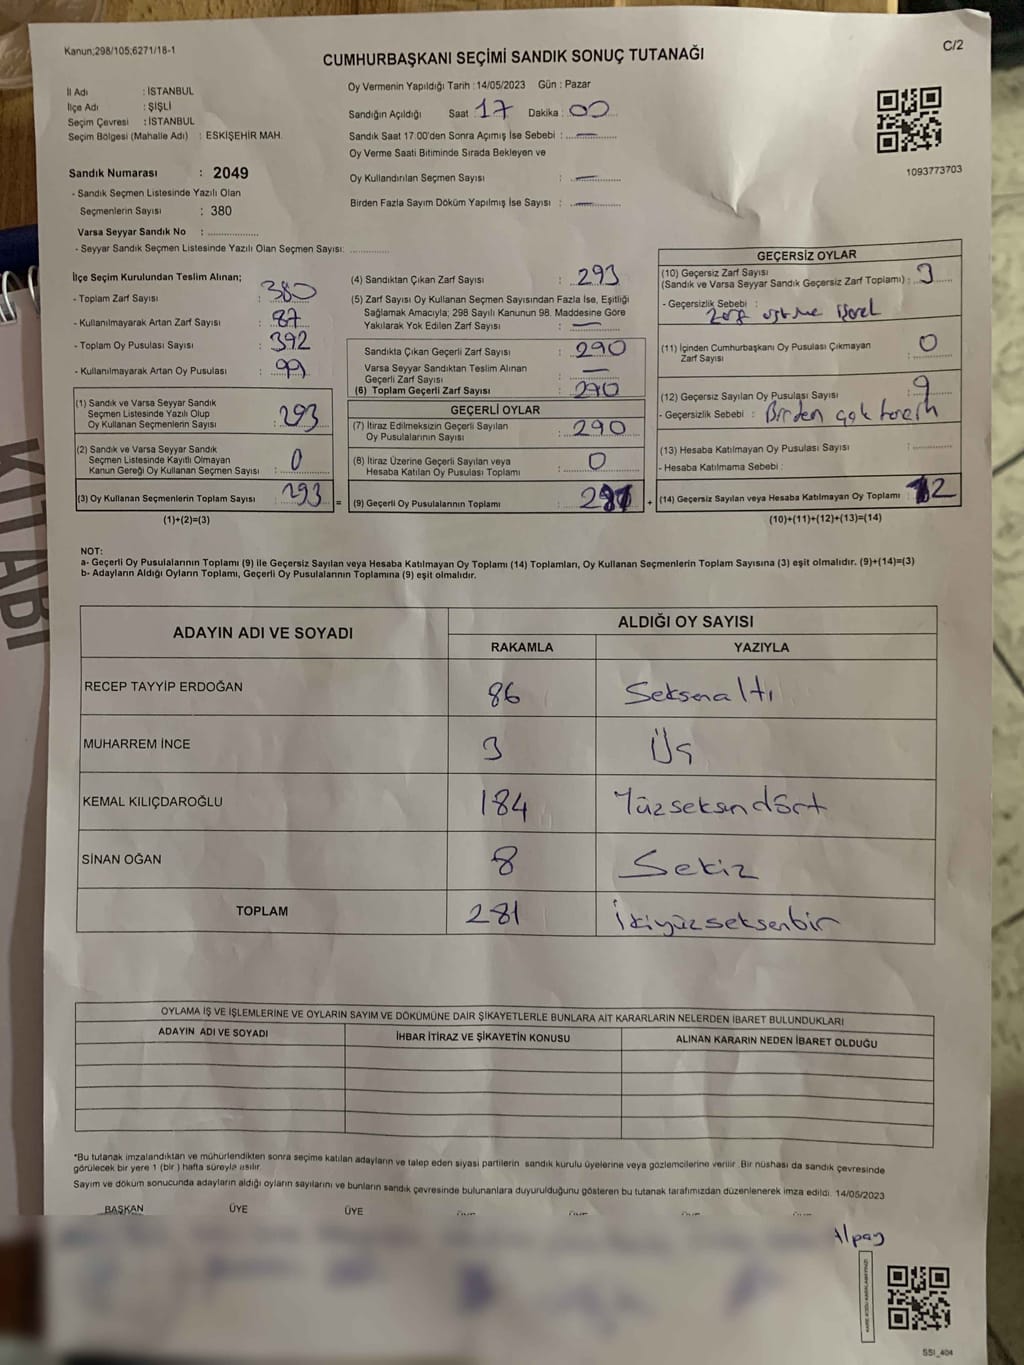 Kanun;298/105;6271/18-1
C/2
CUMHURBAŞKANI SEÇİMİ SANDIK SONUÇ TUTANAĞI
İl Adı : İSTANBUL
İlçe Adı : ŞİŞLİ
Seçim Çevresi : İSTANBUL
Seçim Bölgesi (Mahalle Adı) : ESKİŞEHİR MAH.
Sandık Numarası : 2049
- Sandık Seçmen Listesinde Yazılı Olan
Seçmenlerin Sayısı : 380
Varsa Seyyar Sandık No :
- Seyyar Sandık Seçmen Listesinde Yazılı Olan Seçmen Sayısı:
Oy Vermenin Yapıldığı Tarih :14/05/2023 Gün : Pazar
Sandığın Açıldığı Saat : 17 Dakika : 00
Sandık Saat 17:00'den Sonra Açımış İse Sebebi : —
Oy Verme Saati Bitiminde Sırada Bekleyen ve
Oy Kullandırılan Seçmen Sayısı : —
Birden Fazla Sayım Döküm Yapılmış İse Sayısı : —
1093773703
İlçe Seçim Kurulundan Teslim Alınan;
- Toplam Zarf Sayısı : 380
- Kullanılmayarak Artan Zarf Sayısı : 87
- Toplam Oy Pusulası Sayısı : 392
- Kullanılmayarak Artan Oy Pusulası : 99
(1) Sandık ve Varsa Seyyar Sandık
Seçmen Listesinde Yazılı Olup
Oy Kullanan Seçmenlerin Sayısı : 293
(2) Sandık ve Varsa Seyyar Sandık
Seçmen Listesinde Kayıtlı Olmayan
Kanun Gereği Oy Kullanan Seçmen Sayısı : 0
(3) Oy Kullanan Seçmenlerin Toplam Sayısı : 293
(1)+(2)=(3)
(4) Sandıktan Çıkan Zarf Sayısı : 293
(5) Zarf Sayısı Oy Kullanan Seçmen Sayısından Fazla İse, Eşitliği
Sağlamak Amacıyla; 298 Sayılı Kanunun 98. Maddesine Göre
Yakılarak Yok Edilen Zarf Sayısı : —
Sandıkta Çıkan Geçerli Zarf Sayısı : 290
Varsa Seyyar Sandıktan Teslim Alınan
Geçerli Zarf Sayısı : —
(6) Toplam Geçerli Zarf Sayısı : 290
GEÇERLİ OYLAR
(7) İtiraz Edilmeksizin Geçerli Sayılan
Oy Pusulalarının Sayısı : 290
(8) İtiraz Üzerine Geçerli Sayılan veya
Hesaba Katılan Oy Pusulası Toplamı : 0
= (9) Geçerli Oy Pusulalarının Toplamı : 281 +
GEÇERSİZ OYLAR
(10) Geçersiz Zarf Sayısı
(Sandık ve Varsa Seyyar Sandık Geçersiz Zarf Toplamı) : 3
- Geçersizlik Sebebi :
Zarf üstüne
(11) İçinden Cumhurbaşkanı Oy Pusulası Çıkmayan
Zarf Sayısı : 0
(12) Geçersiz Sayılan Oy Pusulası Sayısı : 9
- Geçersizlik Sebebi : Birden çok tercih
(13) Hesaba Katılmayan Oy Pusulası Sayısı :
- Hesaba Katılmama Sebebi :
(14) Geçersiz Sayılan veya Hesaba Katılmayan Oy Toplamı : 12
(10)+(11)+(12)+(13)=(14)
NOT:
a- Geçerli Oy Pusulalarının Toplamı (9) ile Geçersiz Sayılan veya Hesaba Katılmayan Oy Toplamı (14) Toplamları, Oy Kullanan Seçmenlerin Toplam Sayısına (3) eşit olmalıdır. (9)+(14)=(3)
b- Adayların Aldığı Oyların Toplamı, Geçerli Oy Pusulalarının Toplamına (9) eşit olmalıdır.
ADAYIN ADI VE SOYADI
ALDIĞI OY SAYISI
RAKAMLA YAZIYLA
RECEP TAYYİP ERDOĞAN 86 Seksenaltı
MUHARREM İNCE 3 Üç
KEMAL KILIÇDAROĞLU 184 Yüzseksendört
SİNAN OĞAN 8 Sekiz
TOPLAM 281 İkiyüzseksenbir
OYLAMA İŞ VE İŞLEMLERİNE VE OYLARIN SAYIM VE DÖKÜMÜNE DAİR ŞİKAYETLERLE BUNLARA AİT KARARLARIN NELERDEN İBARET BULUNDUKLARI
ADAYIN ADI VE SOYADI İHBAR İTİRAZ VE ŞİKAYETİN KONUSU ALINAN KARARIN NEDEN İBARET OLDUĞU
*Bu tutanak imzalandıktan ve mühürlendikten sonra seçime katılan adayların ve talep eden siyasi partilerin sandık kurulu üyelerine veya gözlemcilerine verilir. Bir nüshası da sandık çevresinde
görülecek bir yere 1 (bir ) hafta süreyle asılır.
Sayım ve döküm sonucunda adayların aldığı oyların sayılarını ve bunların sandık çevresinde bulunanlara duyurulduğunu gösteren bu tutanak tarafımızdan düzenlenerek imza edildi. 14/05/2023
BAŞKAN ÜYE ÜYE
Alpay
SSI_404
KİTABI